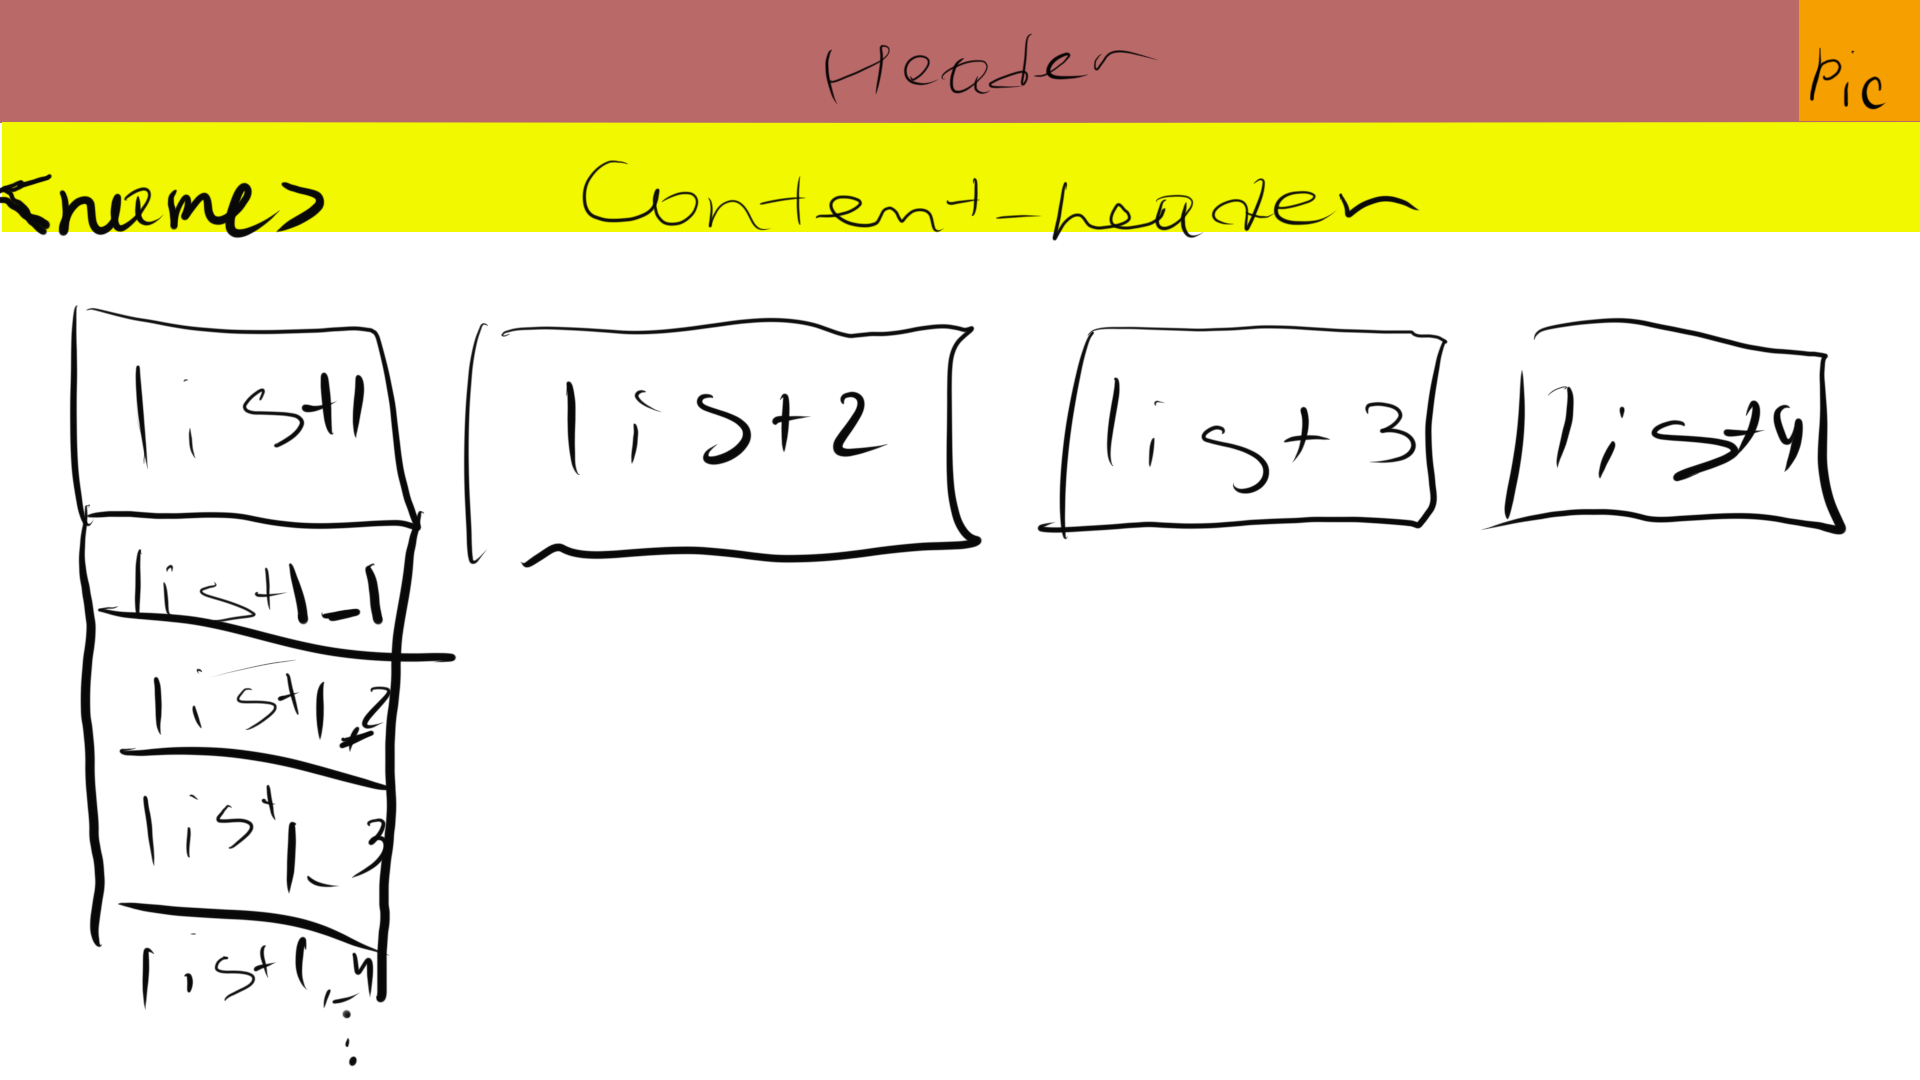 Header
pic
<name> Content-header
list1 list2 list3 list4
list1_1
list1_2
list1_3
list1_4